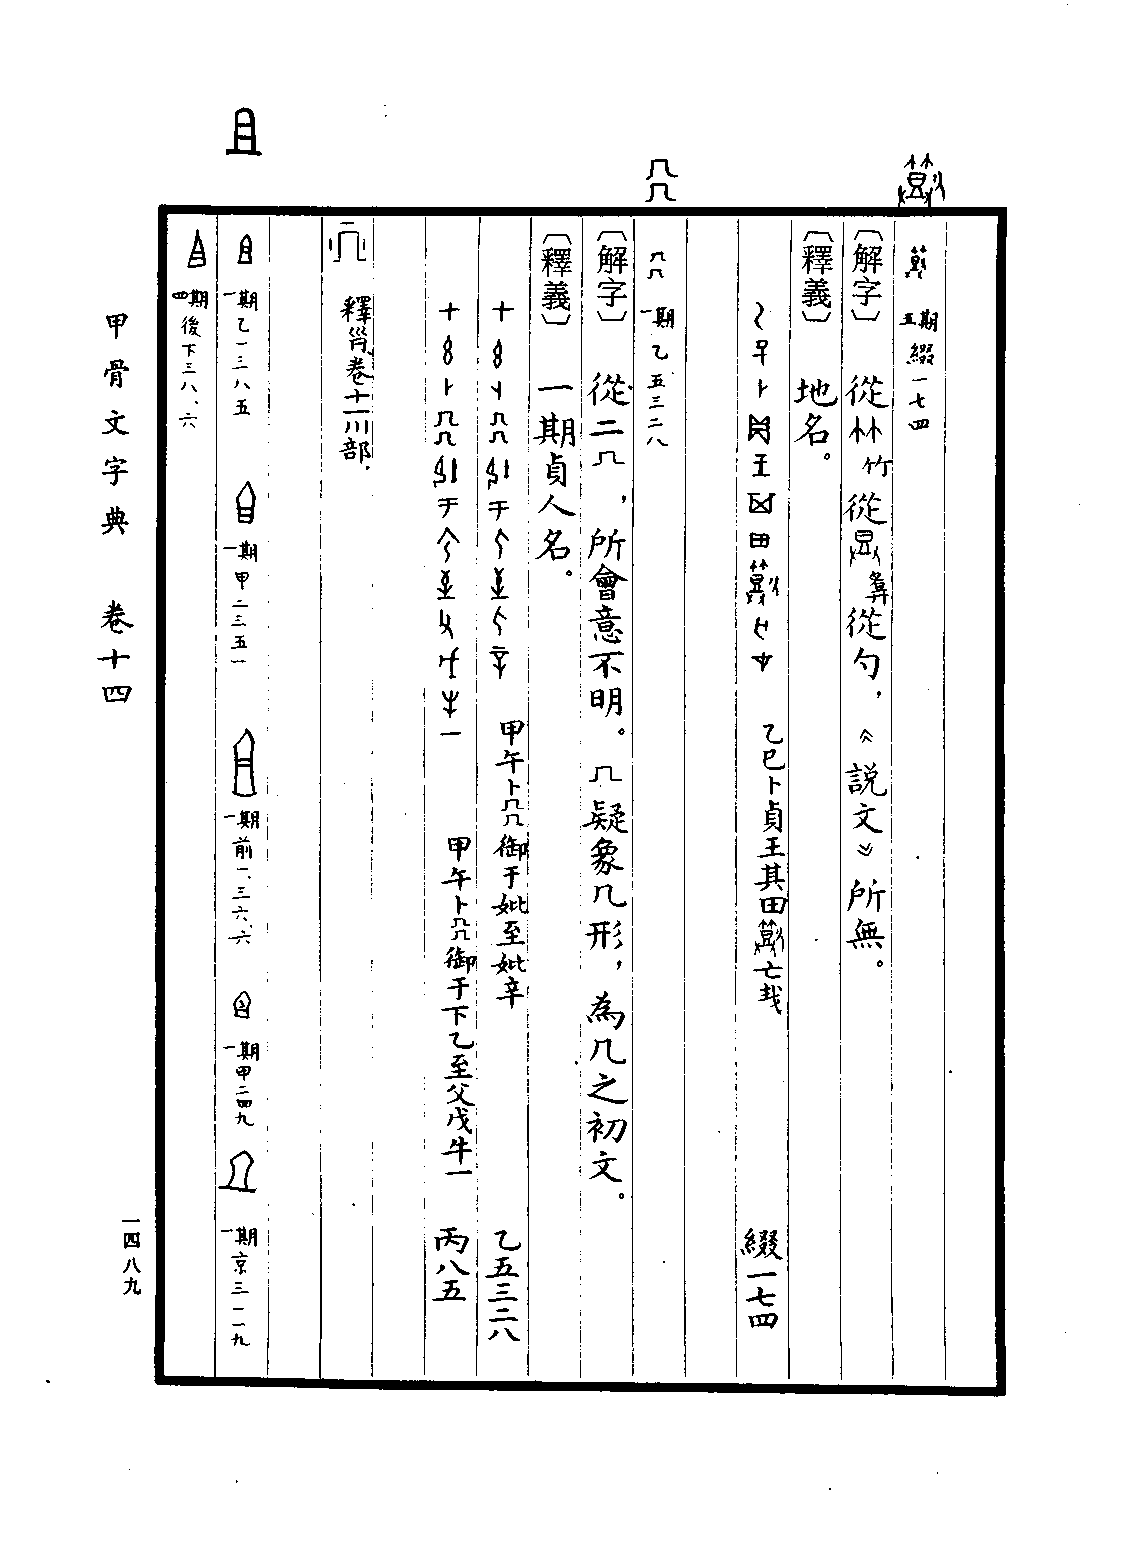 五期 綴一七四
〔解字〕 從林竹從 從勹，《說文》所無。
〔釋義〕 地名。
乙巳卜貞王其田 亡𢦏 綴一七四
一期 乙五三二八
〔解字〕 從二几，所會意不明。几疑象几形，為几之初文。
〔釋義〕 一期貞人名。
甲午卜 御于妣至妣辛 乙五三二八
甲午卜 御于下乙至父戊牛一 丙八五
釋 卷十一川部.
且
一期 乙一三八五
一期 甲二三五一
一期 前一、三六、六
一期 甲二四九
一期 京三一一九
四期 後下三八、六
甲骨文字典 卷十四
一四八九